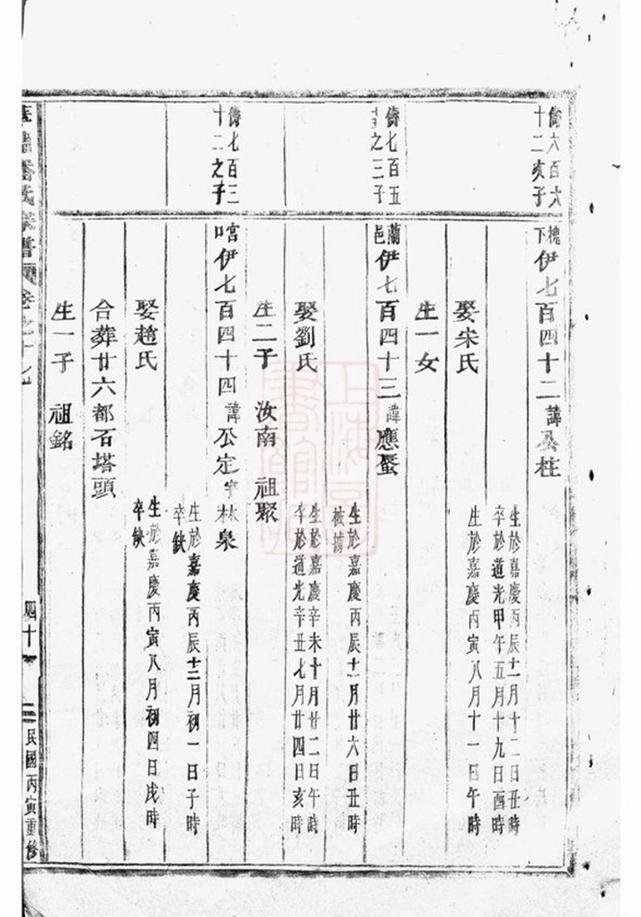 儔六百六
十二亥子
槐下伊七百四十二諱公柱
生於嘉慶丙辰十一月十二日丑時
卒於道光甲午五月十九日酉時
娶宋氏
生於嘉慶丙寅八月十一日午時
生一女
儔七百五
之三子
蘭邑伊七百四十三諱應蛋
生於嘉慶丙辰十一月廿六日丑時
被擄
娶劉氏
生於嘉慶辛未十月廿二日午時
卒於道光辛丑七月廿四日亥時
生二子 汝南 祖聚
儔七百三
十二之子
伊七百四十四諱公定字林泉
生於嘉慶丙辰十二月初一日子時
卒缺
娶趙氏
生於嘉慶丙寅八月初四日戌時
卒缺
合葬廿六都石塔頭
生一子 祖銘
氏 譜 卷之十九
四十
民國丙寅重修
上海圖書館藏